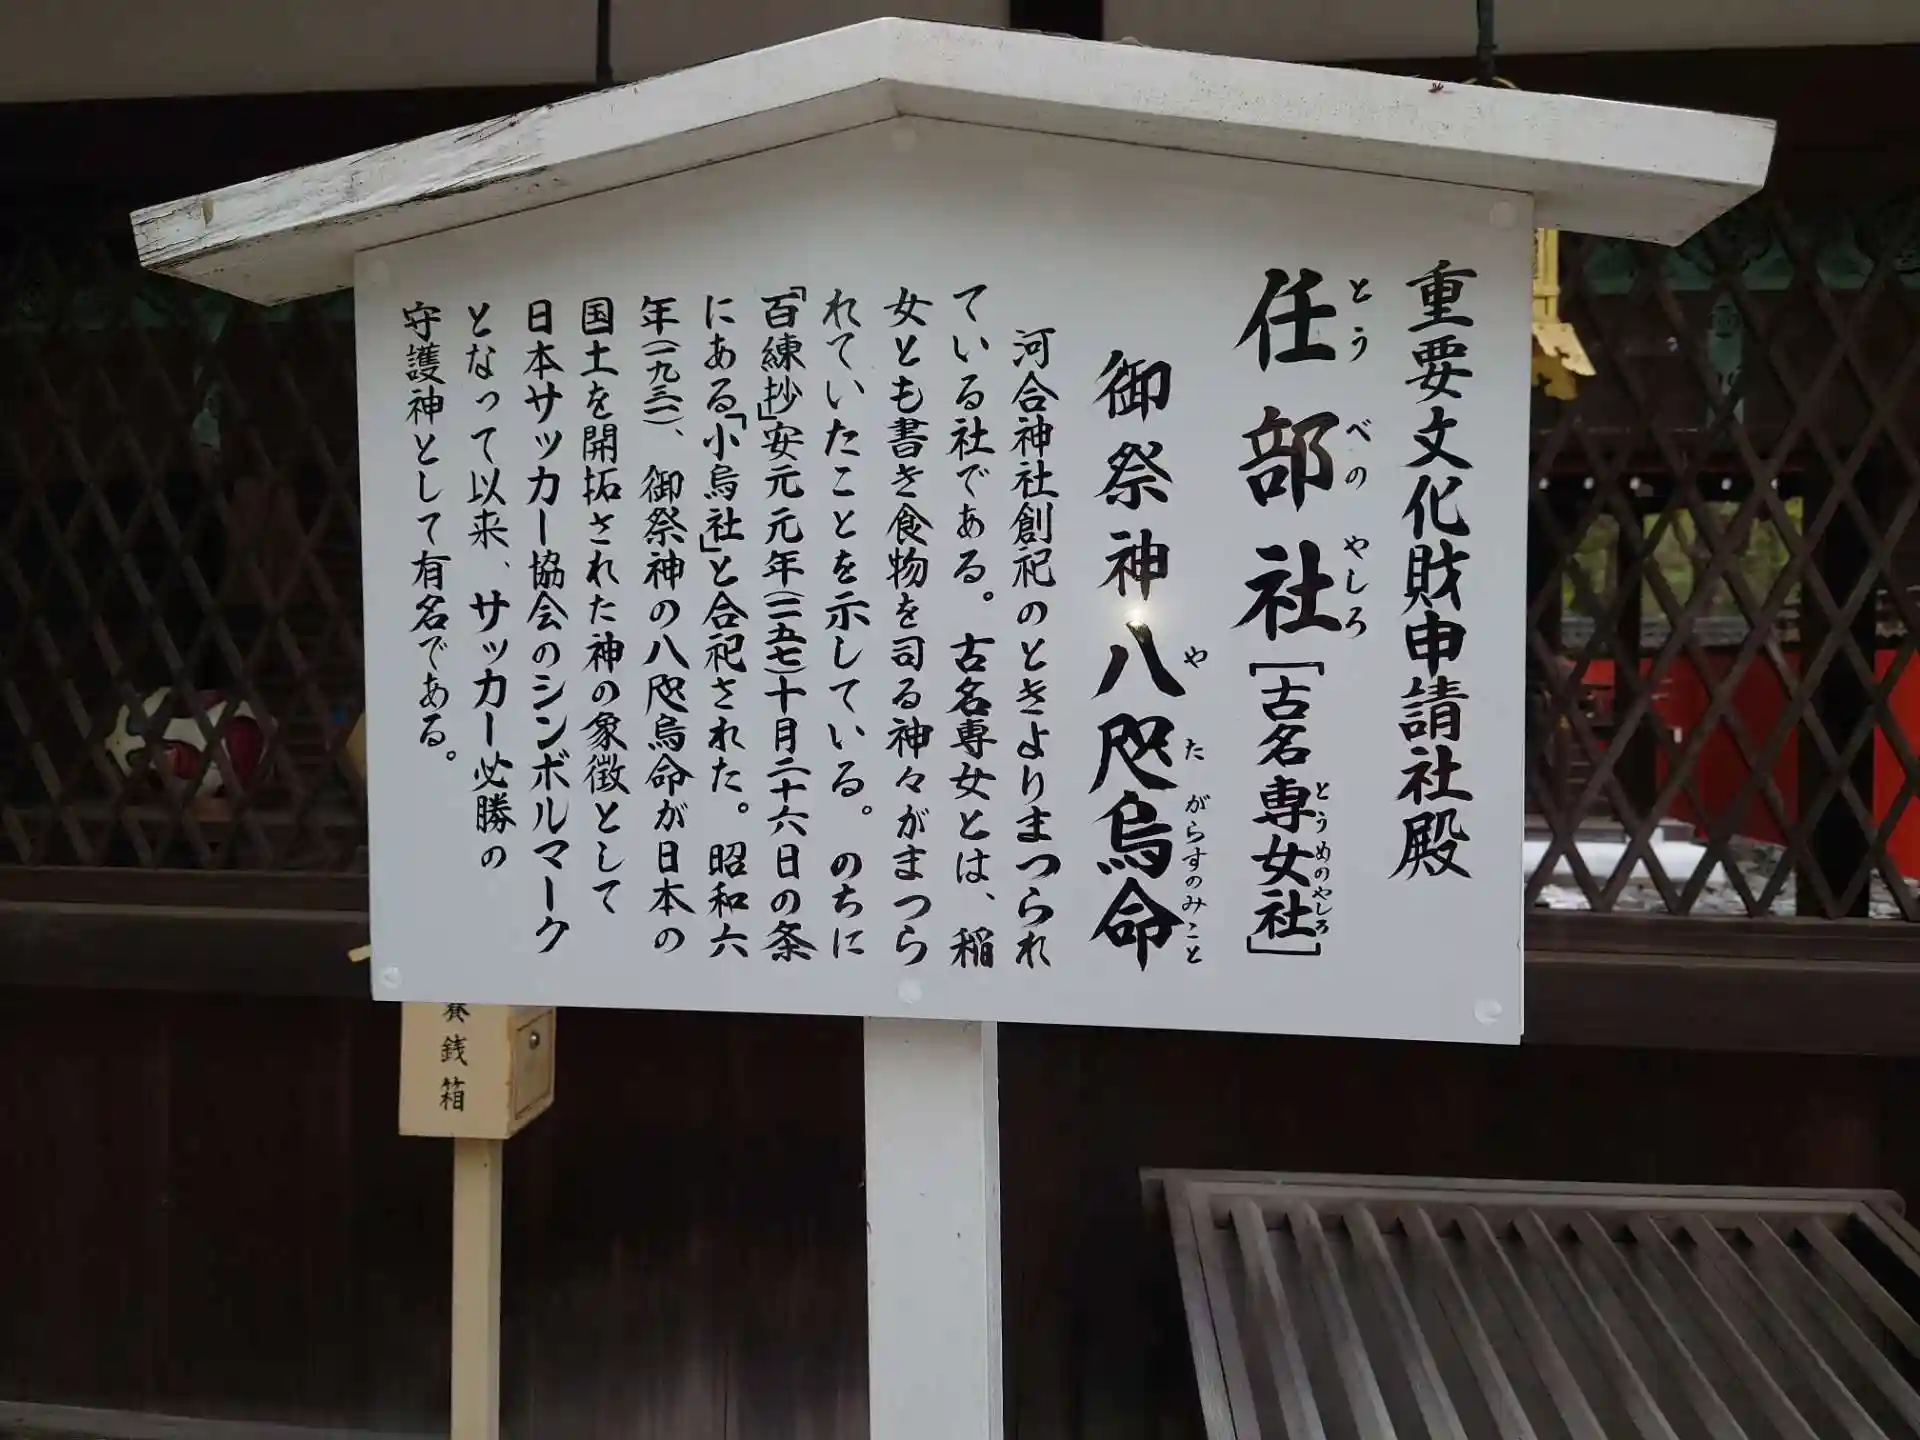 重要文化財申請社殿
任部社[古名専女社]
とうべのやしろ
とうめのやしろ
御祭神八咫烏命
やたがらすのみこと
河合神社創祀のときよりまつられ
ている社である。古名専女とは、稲
女とも書き食物を司る神々がまつら
れていたことを示している。のちに
「百練抄」安元元年(一一五七)十月二十六日の条
にある「小烏社」と合祀された。昭和六
年(一九三一)、御祭神の八咫烏命が日本の
国土を開拓された神の象徴として
日本サッカー協会のシンボルマーク
となって以来、サッカー必勝の
守護神として有名である。
賽銭箱